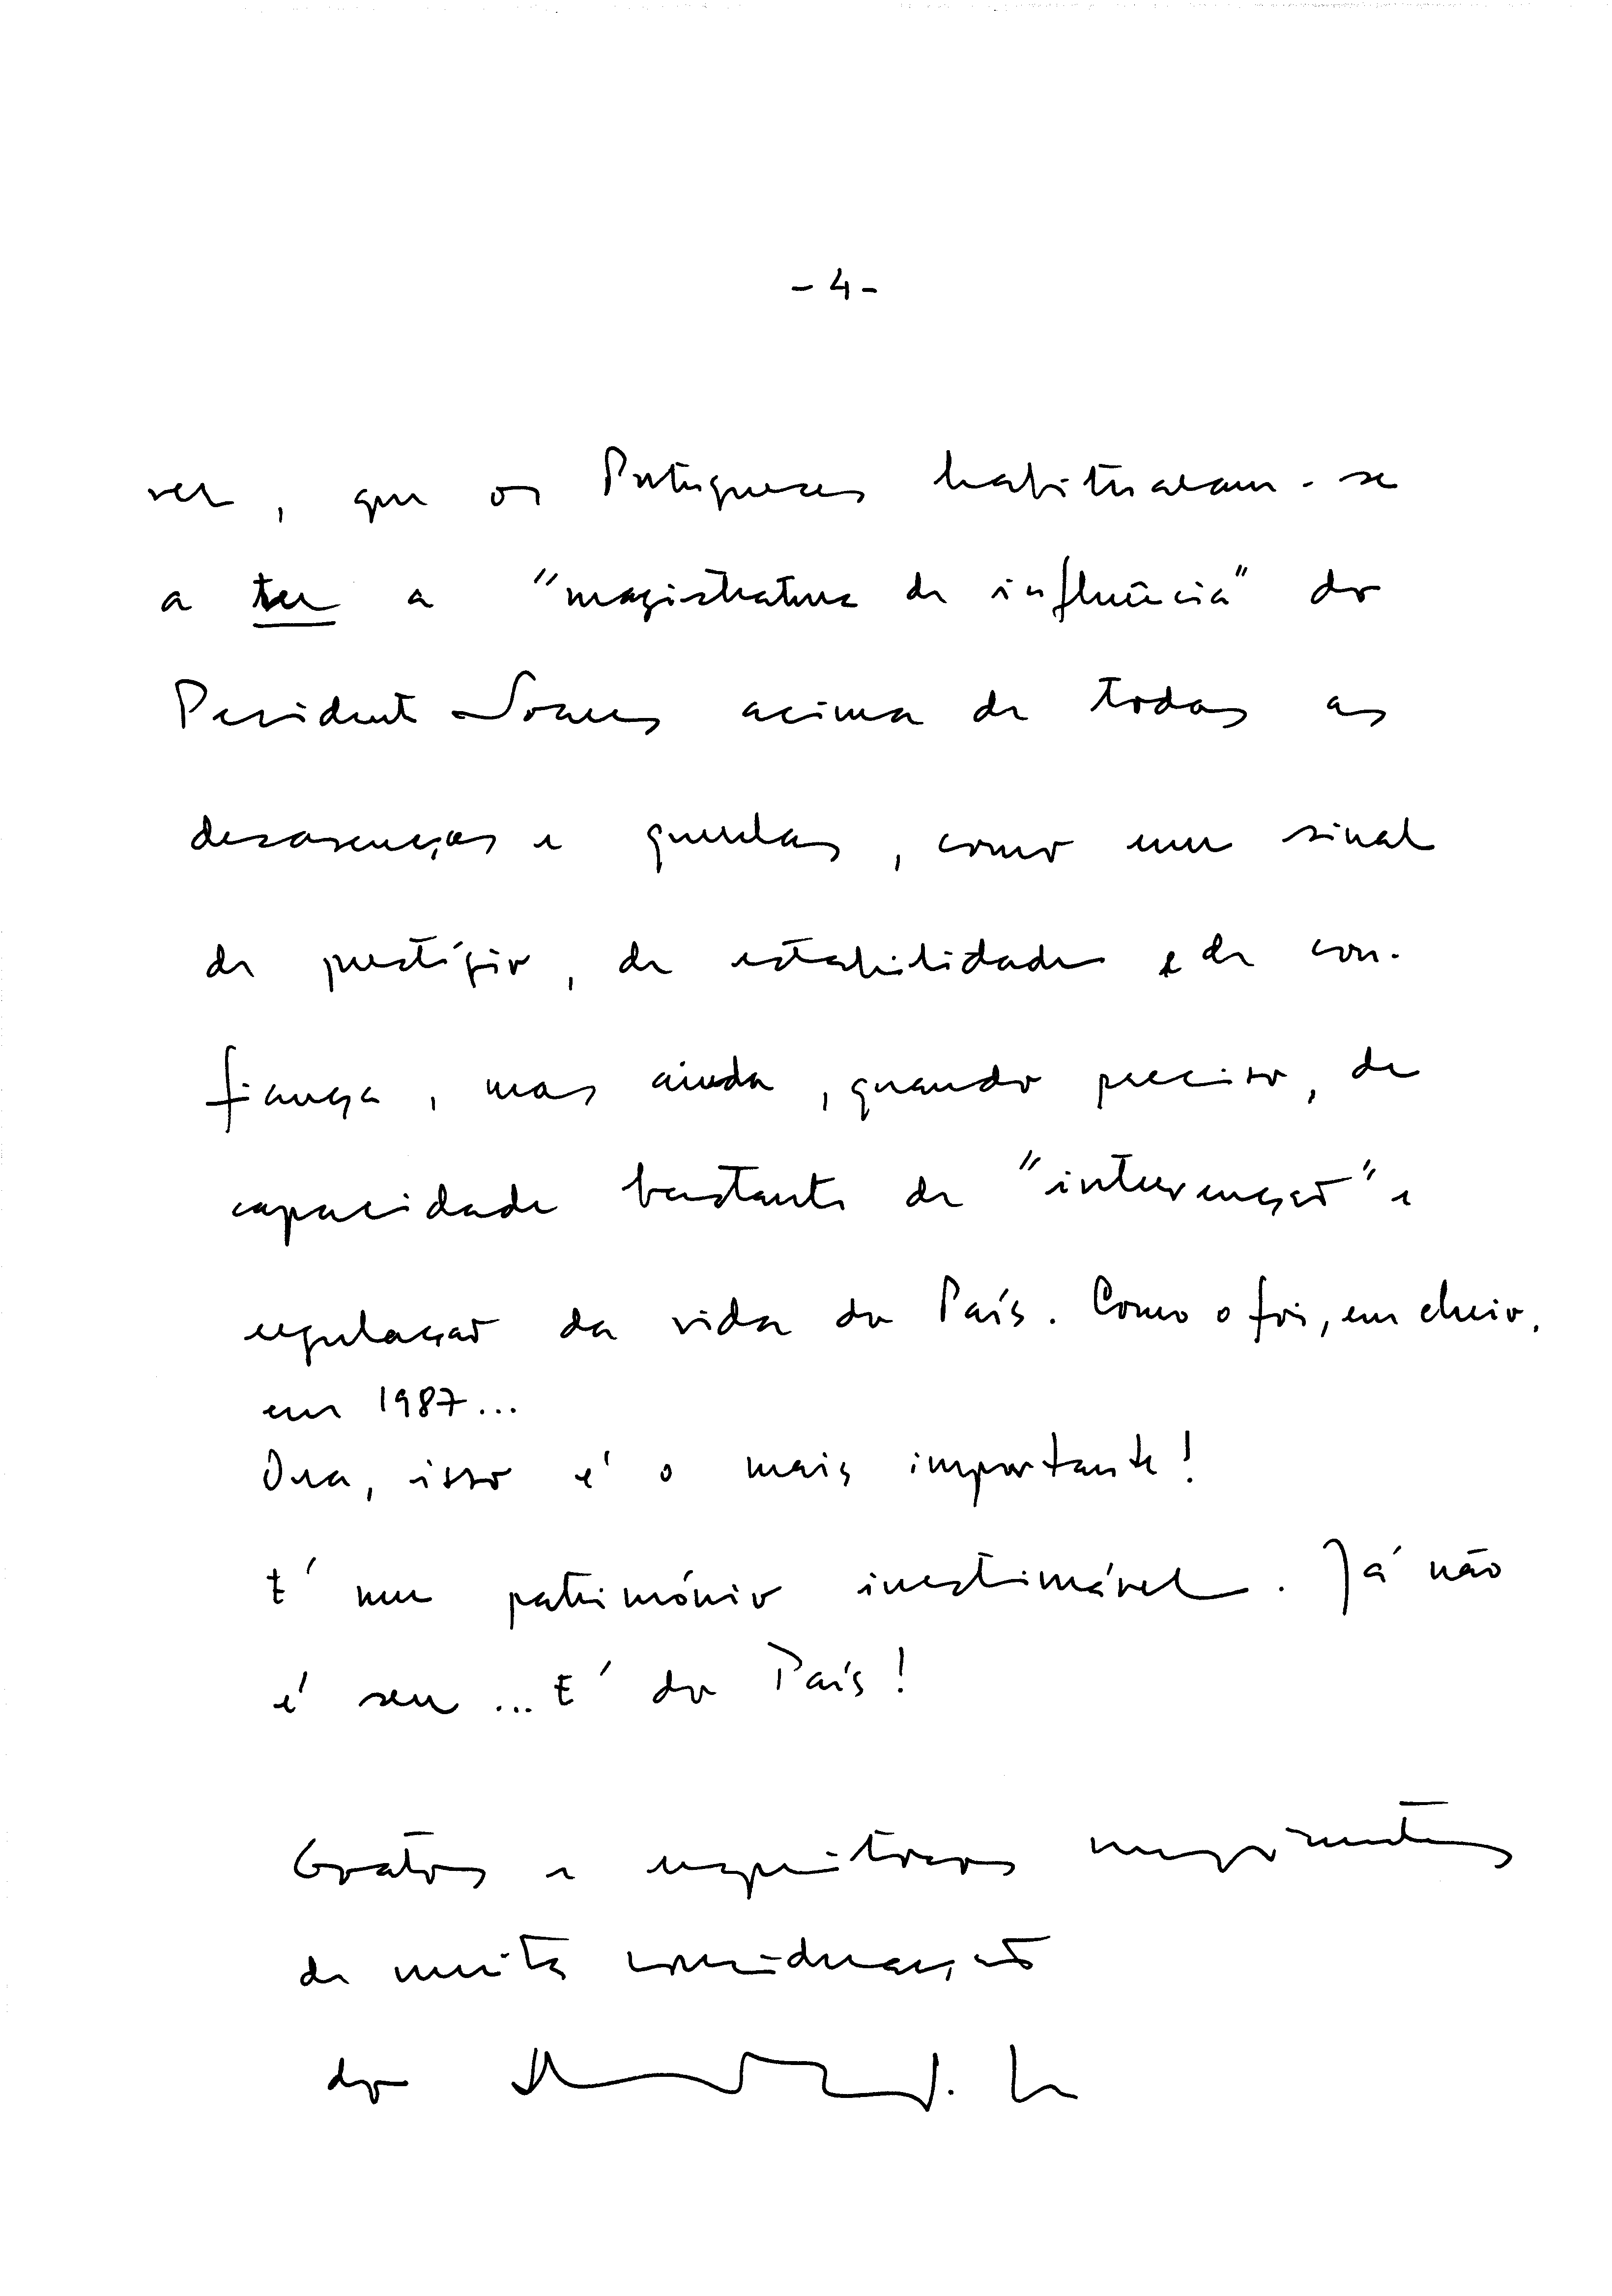 - 4 -
ver, que os Portugueses habituaram-se
a ter a "magistratura de influência" do
Presidente Soares acima de todas as
desavenças e querelas, como um sinal
de prestígio, de estabilidade e de con-
fiança, mas ainda, quando preciso, de
capacidade bastante de "intervenção" e
regulação da vida do País. Como o foi, em cheio,
em 1987...
Ora, isso é o mais importante!
É um património inestimável. Já não
é seu... É do País!
Gratos e respeitosos cumprimentos
de muita consideração
do